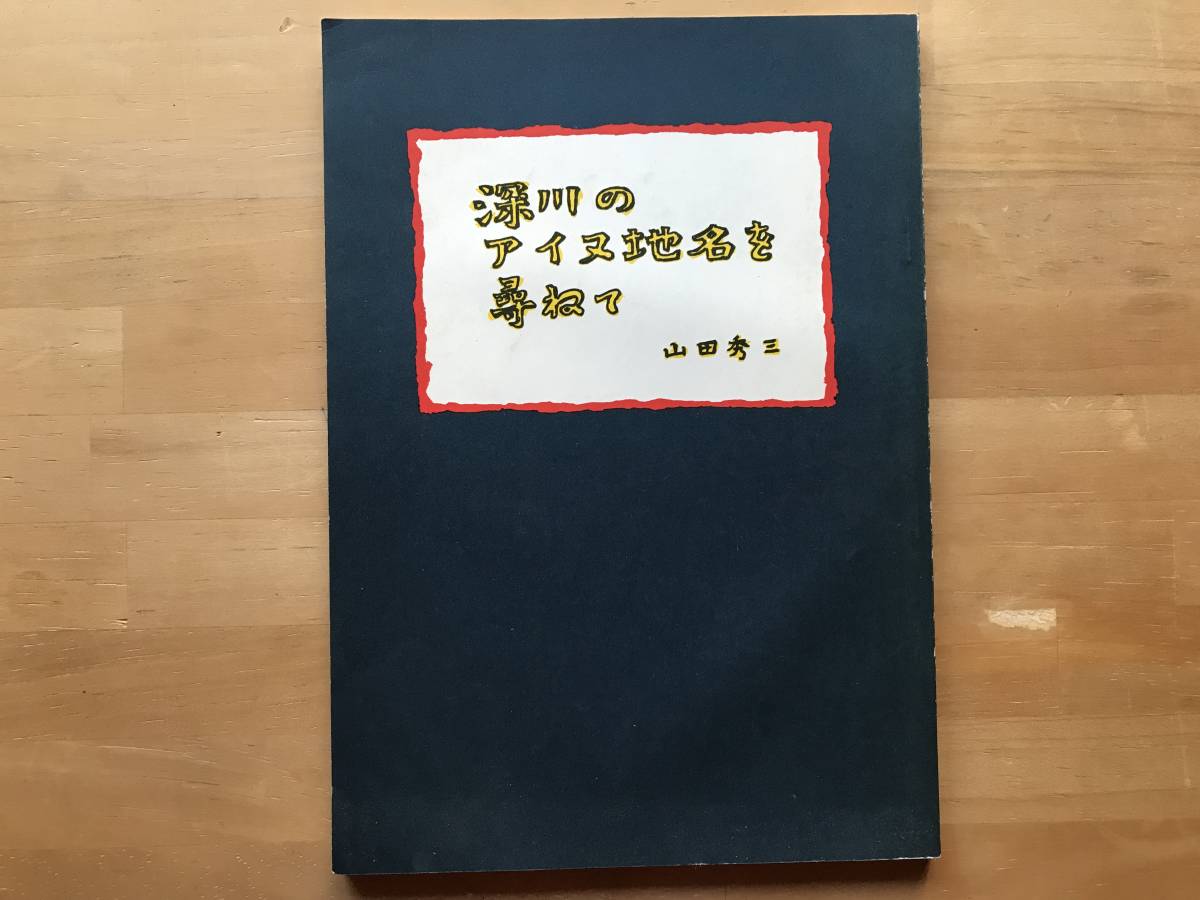 深川の
アイヌ地名を
尋ねて
山田秀三